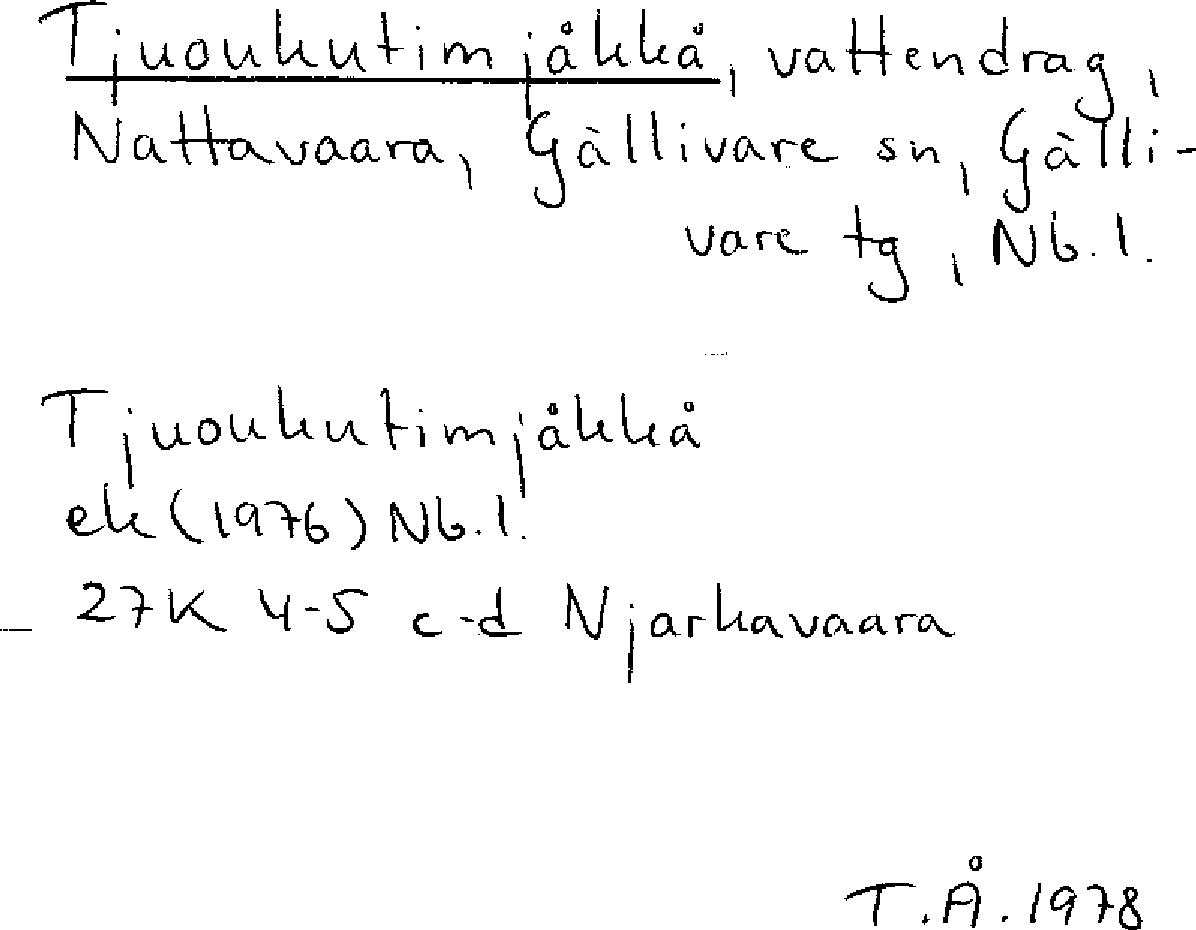 Tjuoukutimjåkkå, vattendrag,
Nattavaara, Gällivare sn, Gälli-
vare tg, Nb. l.
Tjuoukutimjåkkå
ek (1976) Nb. l.
27K 4-5 c-d Njarkavaara
T.Å. 1978